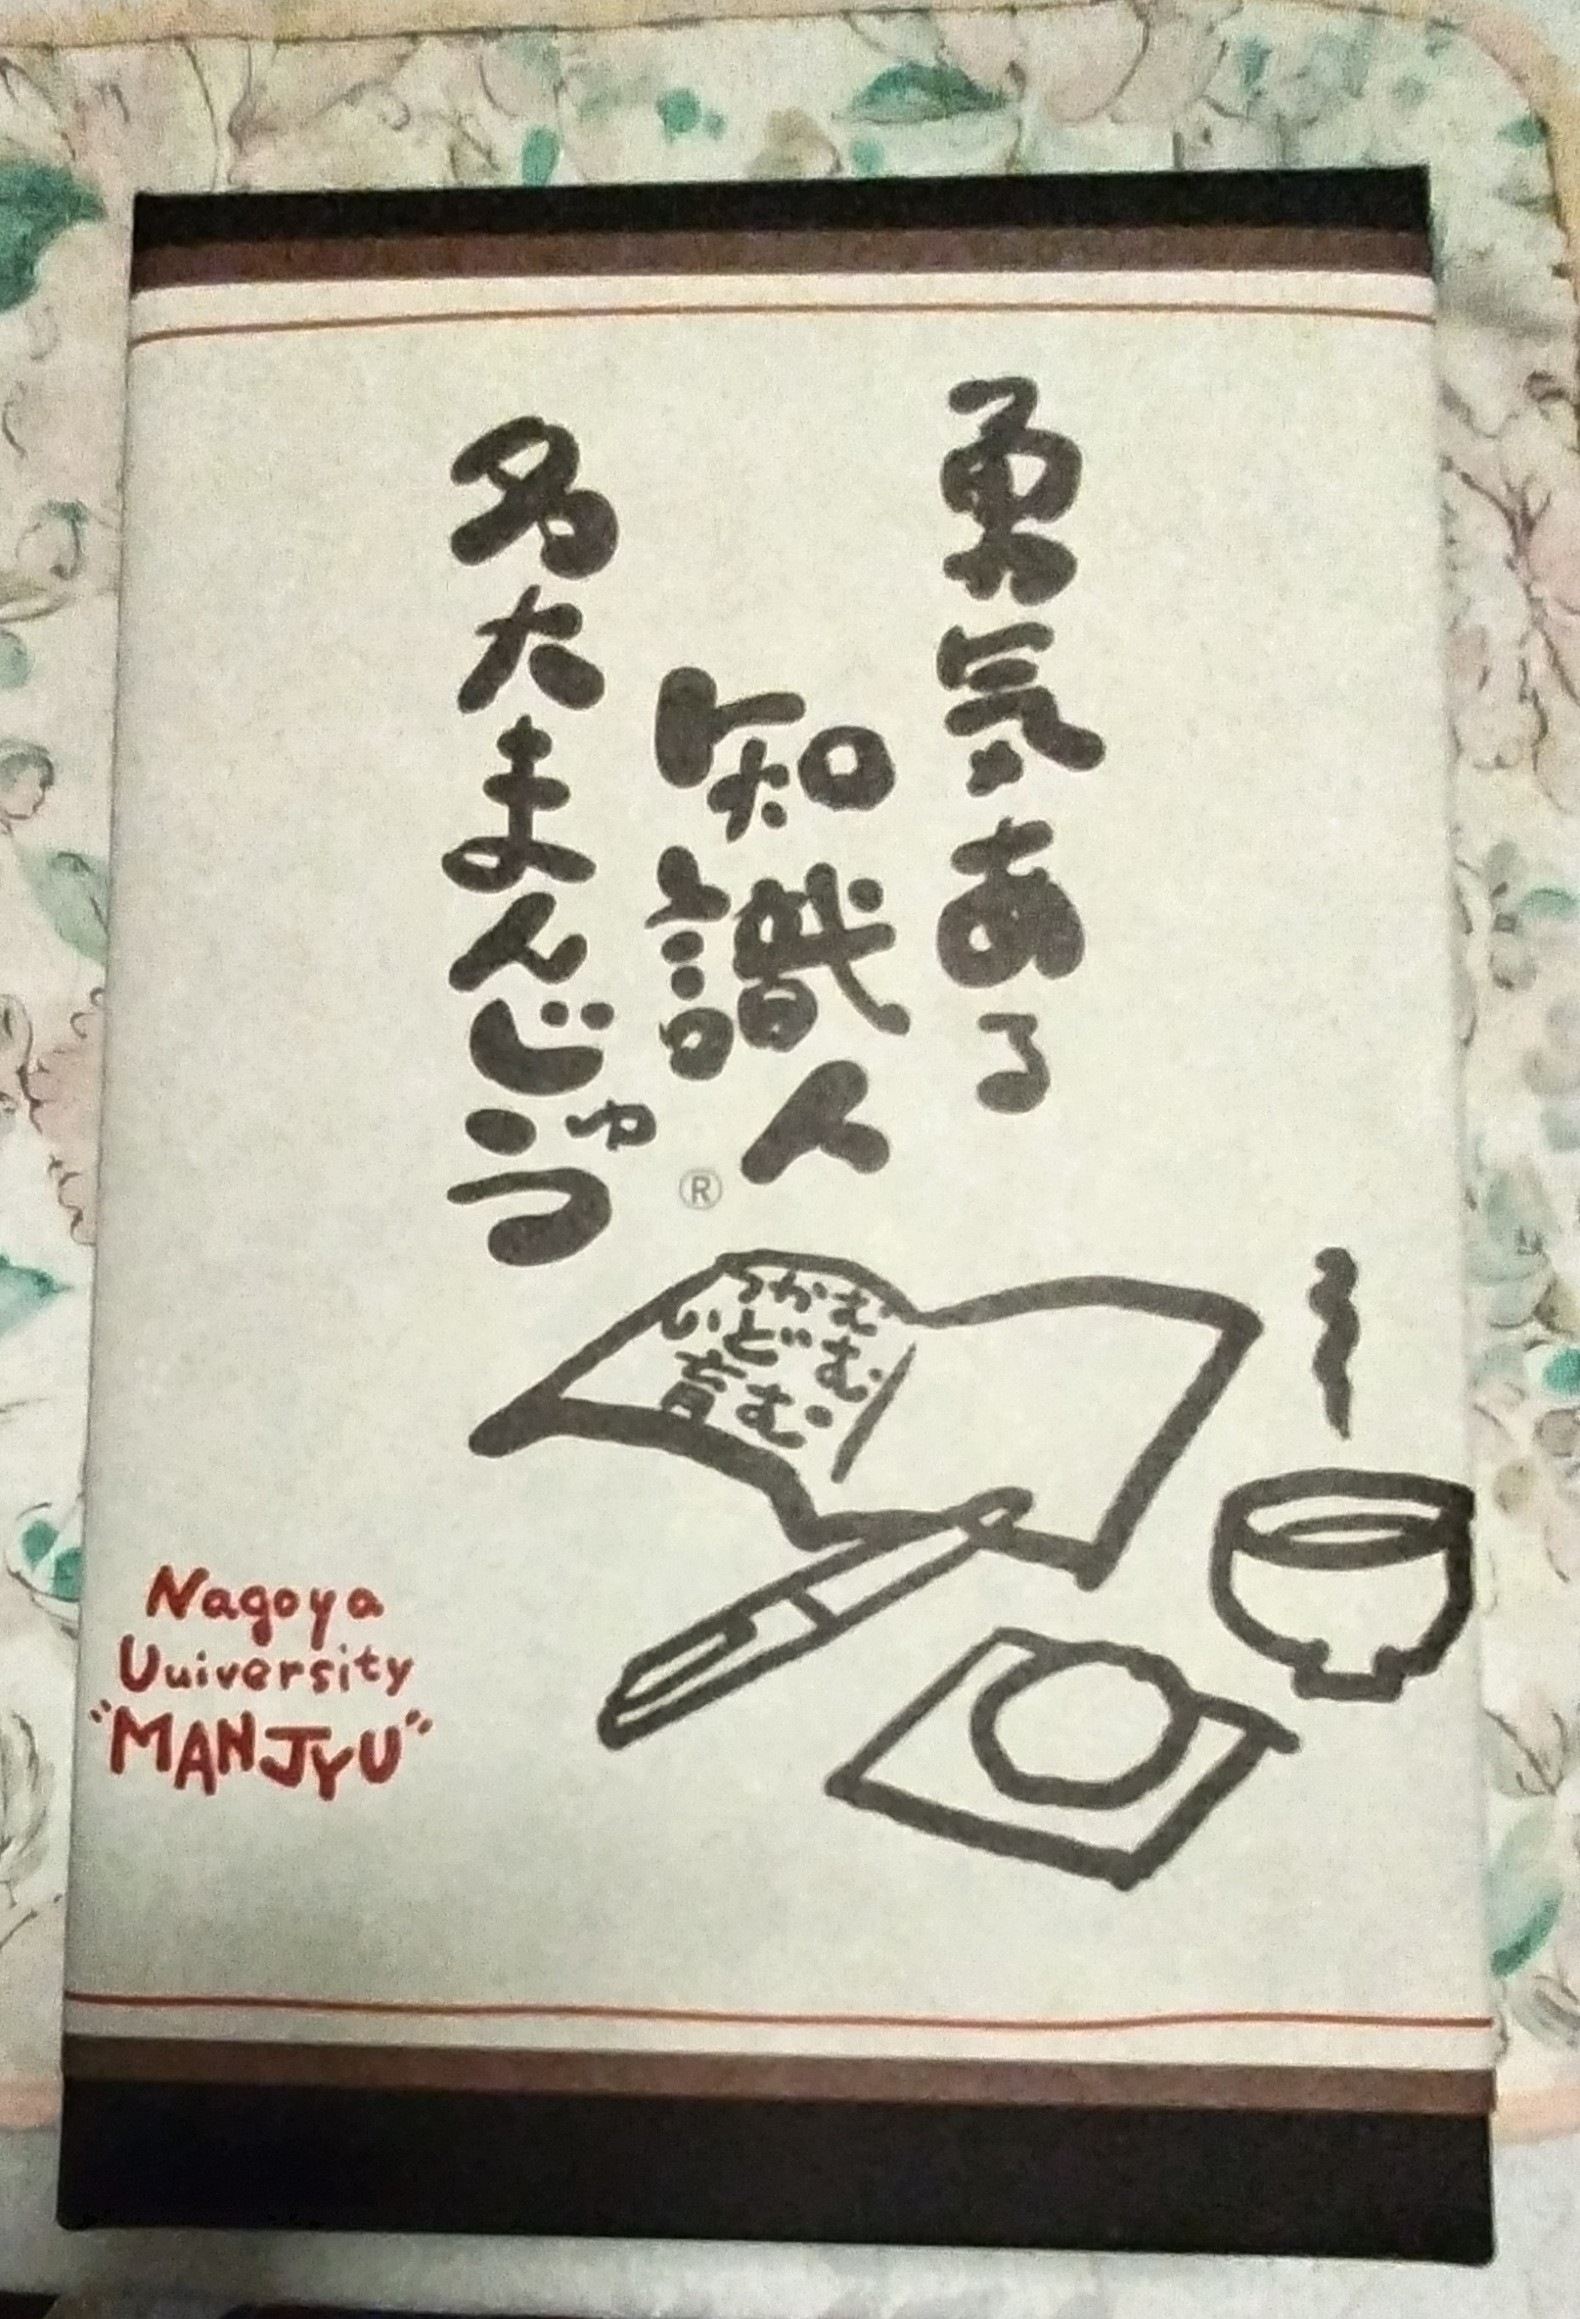 勇気ある
知識人
®
名大まんじゅう
つかむ
いどむ
育む
Nagoya
University
"MANJYU"